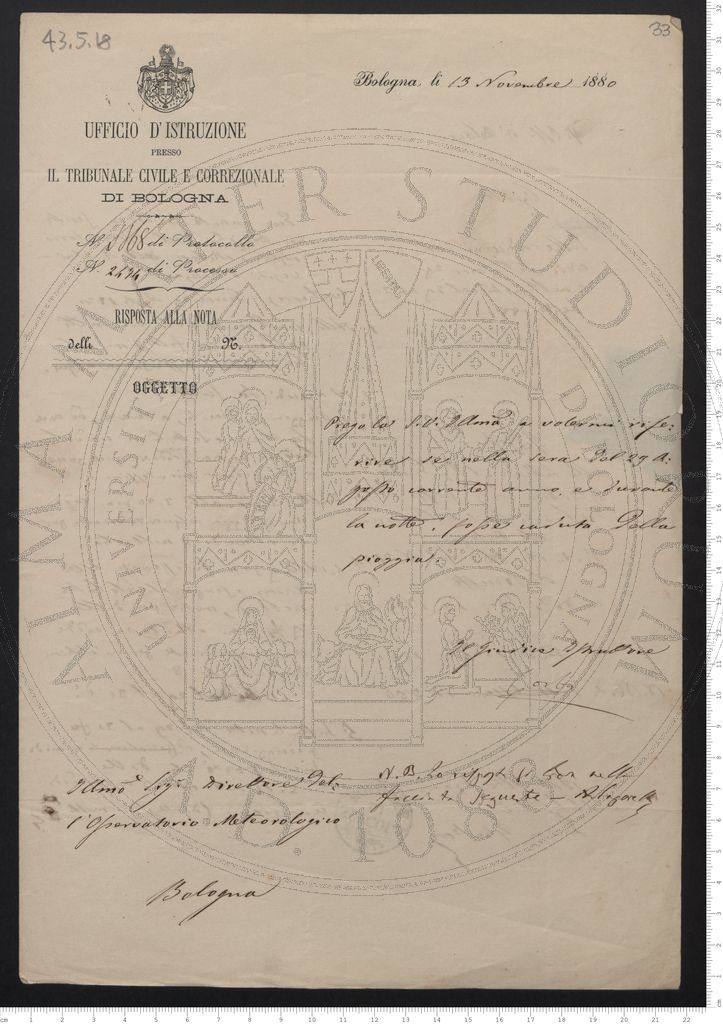 43.5.18
33
Bologna, li 13 Novembre 1880
UFFICIO D'ISTRUZIONE
PRESSO
IL TRIBUNALE CIVILE E CORREZIONALE
DI BOLOGNA
N. 5868 di Protocollo
N. 2474 di Processo
RISPOSTA ALLA NOTA
delli N.
OGGETTO
Prego la S. V. Illma a volermi rife:
rire se nella sera del 29 A:
gosto corrente anno, e durante
la notte, fosse caduta della
pioggia.
Il Giudice Istruttore
Illmo Sigr Direttore del:
l'Osservatorio Meteorologico
Bologna
N. B. La risposta si trova nella
facciata seguente
ALMA MATER STUDIORUM
UNIVERSITÀ DI BOLOGNA
A.D. 1088